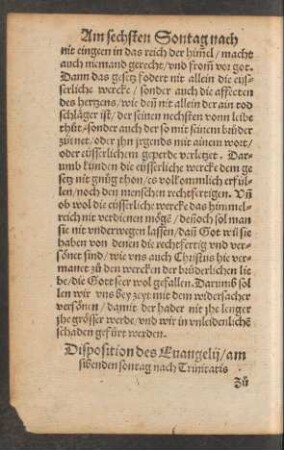 Am sechsten Sontag nach
nit eingeen in das reich der him̃el / macht
auch niemand gerecht / vnd from̃ vor got.
Dann das gesetz fodert nit allein die eys-
serliche wercke / sonder auch die affecten
des hertzens / wie deñ nit allein der ain tod
schläger ist / der seinen nechsten vom leibe
thüt / sonder auch der so mit seinem brüder
zürnet / oder jhn jrgends mit ainem wort /
oder eüsserlichem geperde verletzet. Dar-
umb künden die eüsserliche wercke dem ge
setz nit gnůg thon / es volkommlich erfül-
len / noch den menschen rechtfertigen. Vñ
ob wol die eüsserliche wercke das himmel-
reich nit verdienen mögẽ / deñoch sol man
sie nit vnderwegen lassen / dañ Got wil sie
haben von denen die rechtfertig vnd ver-
sönet sind / wie vns auch Christus hie ver-
manet zů den wercken der brüderlichen lie
be / die Gott seer wol gefallen. Darumb sol
len wir vns bey zeyt mit dem widersacher
versönen / damit der hader nit jhe lenger
jhe grösser werde / vnd wir in vnleidenlichẽ
schaden gefürt werden.
Disposition des Euangelij / am
sibenden sontag nach Trinitatis
Zů